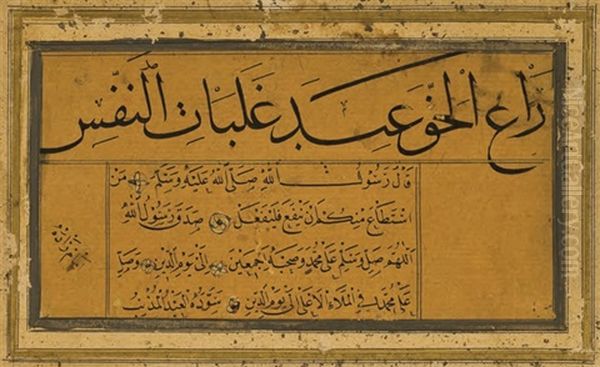 رَاعِ الْحَقَّ عِنْدَ غَلَبَاتِ النَّفْسِ
قَالَ رَسُولُ اللّٰهِ صَلَّى اللّٰهُ عَلَيْهِ وَسَلَّمَ مَنْ
اسْتَطَاعَ مِنْكُمْ اَنْ يَنْفَعَ فَلْيَفْعَلْ صَدَقَ رَسُولُ اللّٰهِ
اَللّٰهُمَّ صَلِّ وَسَلِّمْ عَلٰى مُحَمَّدٍ وَصَحْبِهِ اَجْمَعِينَ اِلٰى يَوْمِ الدِّينِ وَصَلِّ
عَلٰى مُحَمَّدٍ فِي الْمَلَاءِ الْاَعْلٰى اِلٰى يَوْمِ الدِّينِ سَوَّدَهُ الْعَبْدُ الْمُذْنِبُ